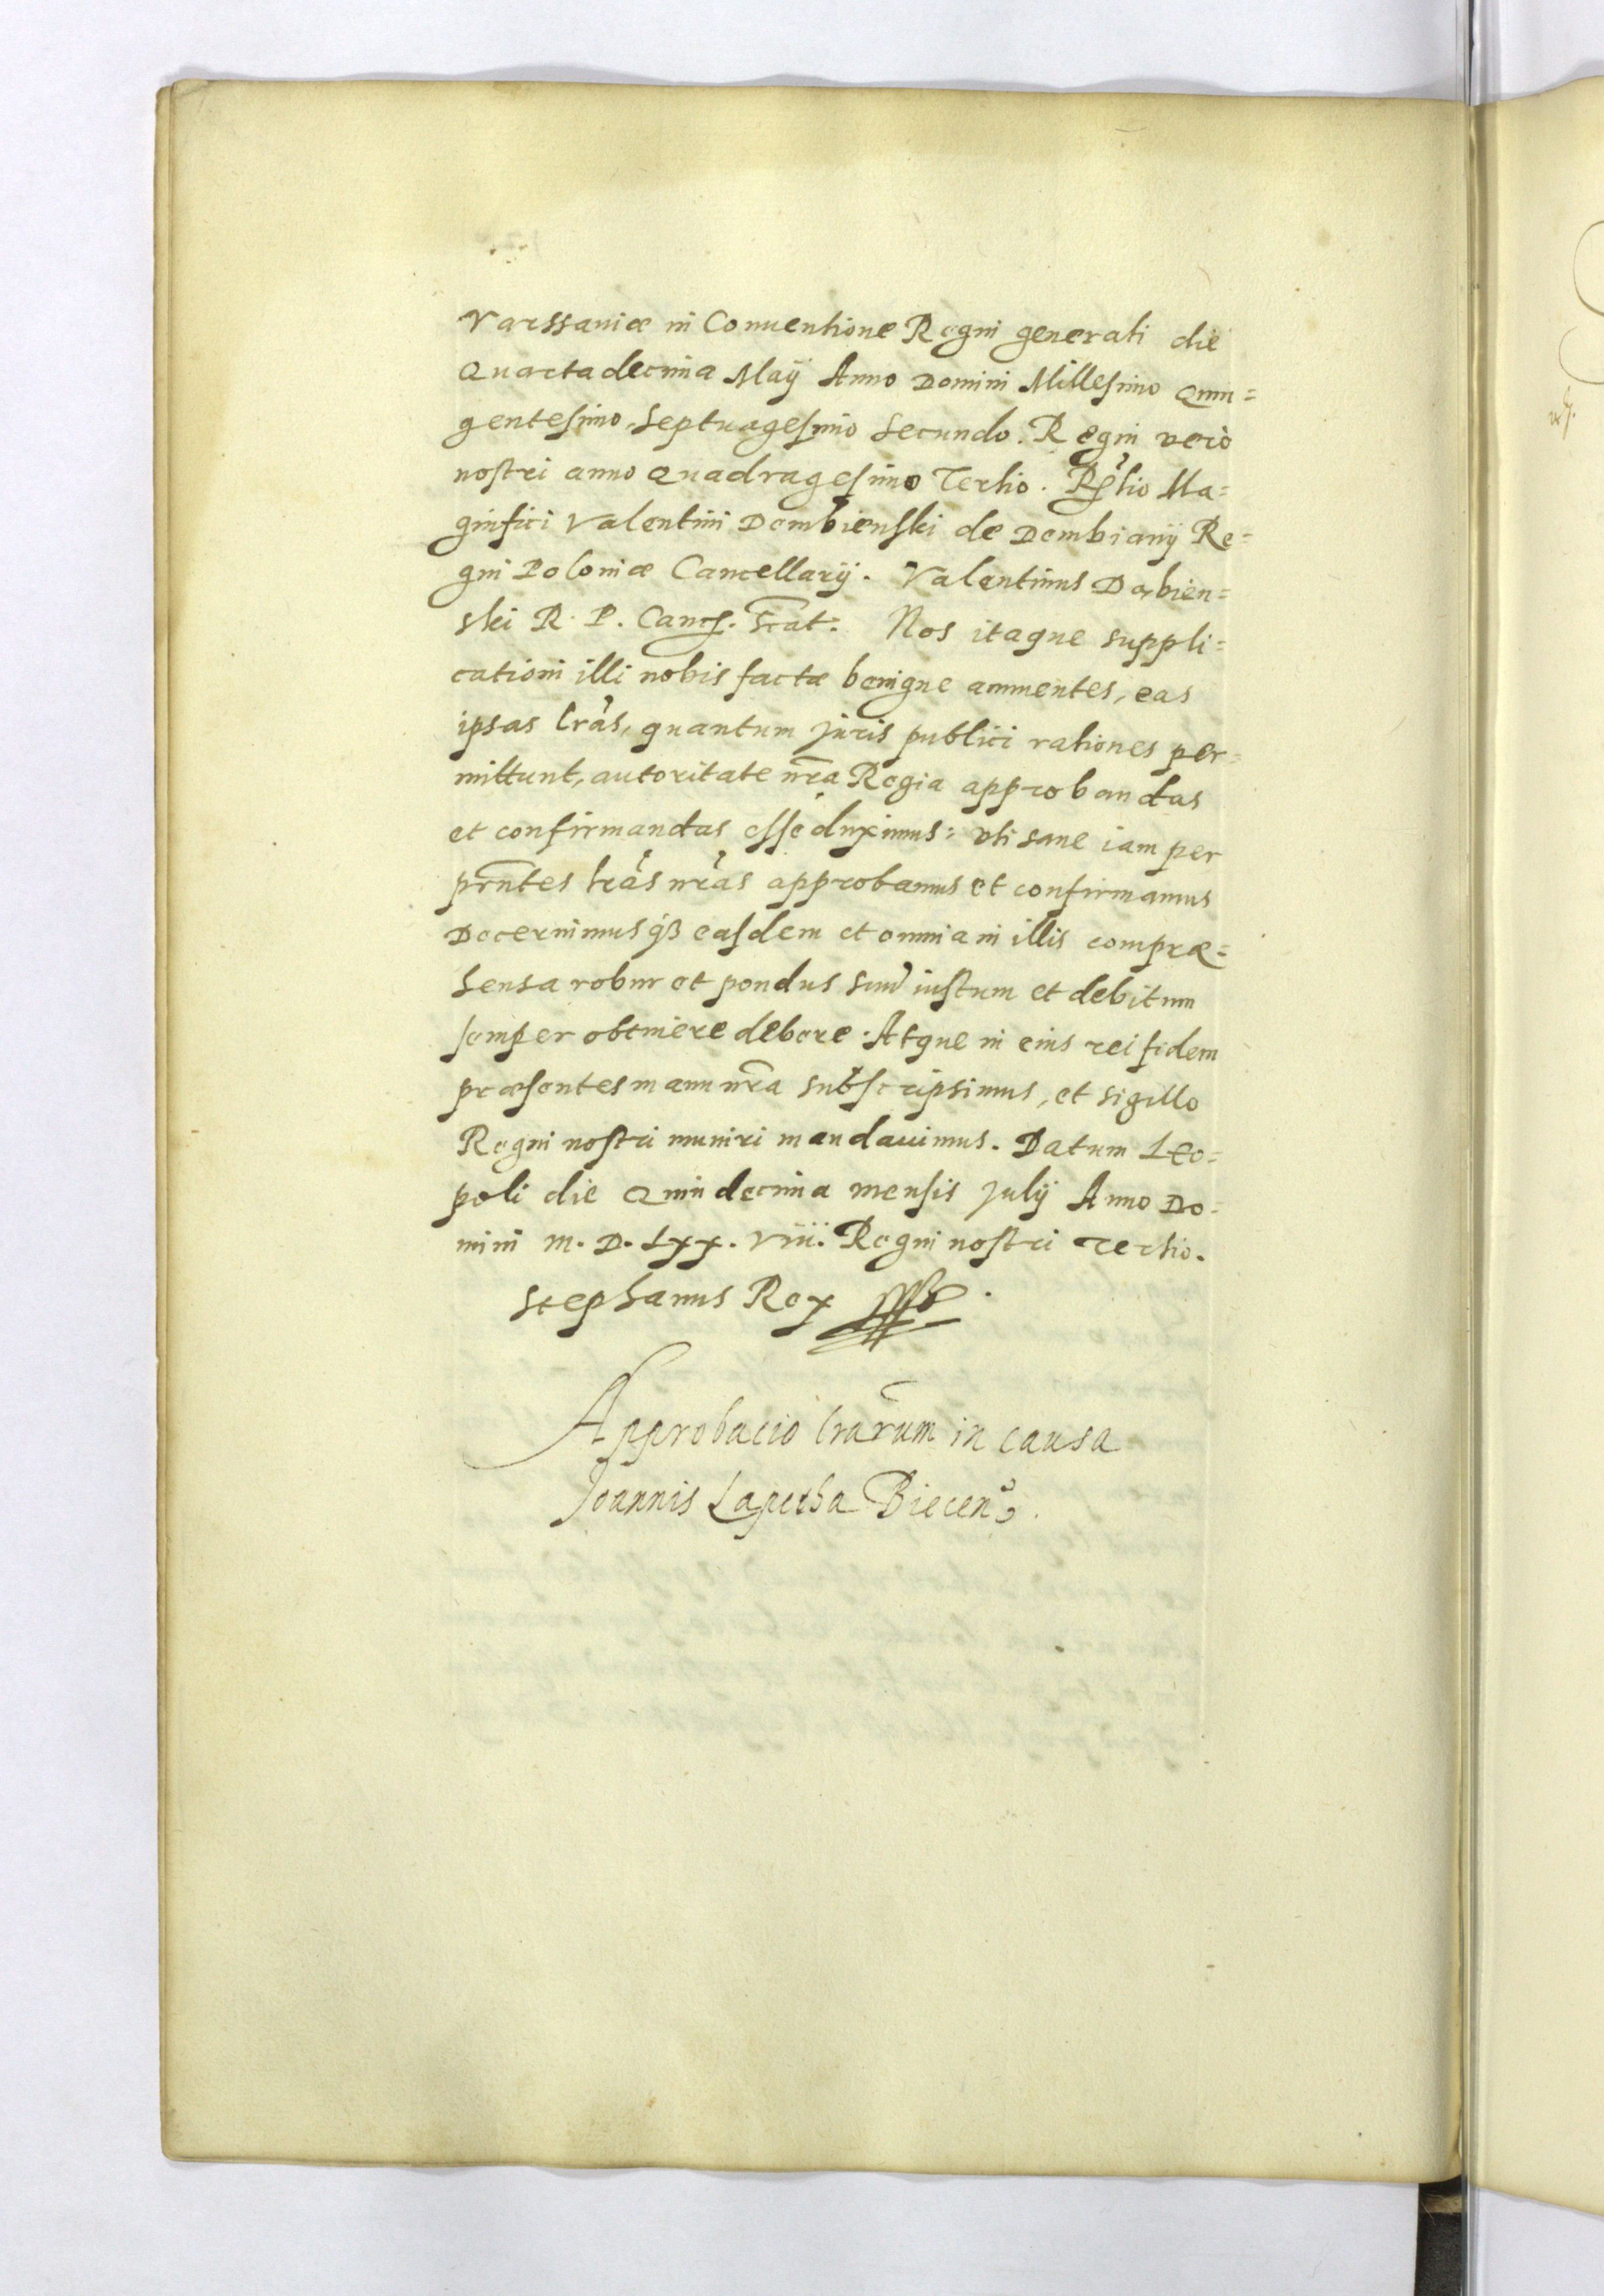 Varssaviæ in Conuentione Regni generali die
Quartadecima Maij Anno Domini Millesimo Quin=
gentesimo, Septuagesimo Secundo. Regni verò
nostri anno Quadragesimo Tertio. Rtio Ma=
gnifici Valentini Dembienski de Dembianÿ Re=
gni Poloniæ Cancellarij. Valentinus Dąbien=
ski R. P. Canc. sst. Nos itaque suppli=
cationi illi nobis factæ benigne annuentes, eas
ipsas lras, quantum juris publici rationes per=
mittunt, autoritate nra Regia approbandas
et confirmandas esse duximus: vti sane iam per
prntes lras nras approbamus et confirmamus
Decernimusqß easdem et omnia in illis compræ=
hensa robur et pondus suum iustum et debitum
semper obtinere debere. Atque in eius rei fidem
præsentes manu nra subscripsimus, et sigillo
Regni nostri muniri mandauimus. Datum Leo=
poli die Quindecima mensis Julij Anno Do=
mini M. D. LXX. Viii. Regni nostri Tertio.
Stephanus Rex
Approbacio lrarum in causa
Joannis Biecen